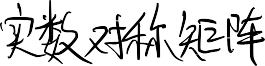 实数对称矩阵